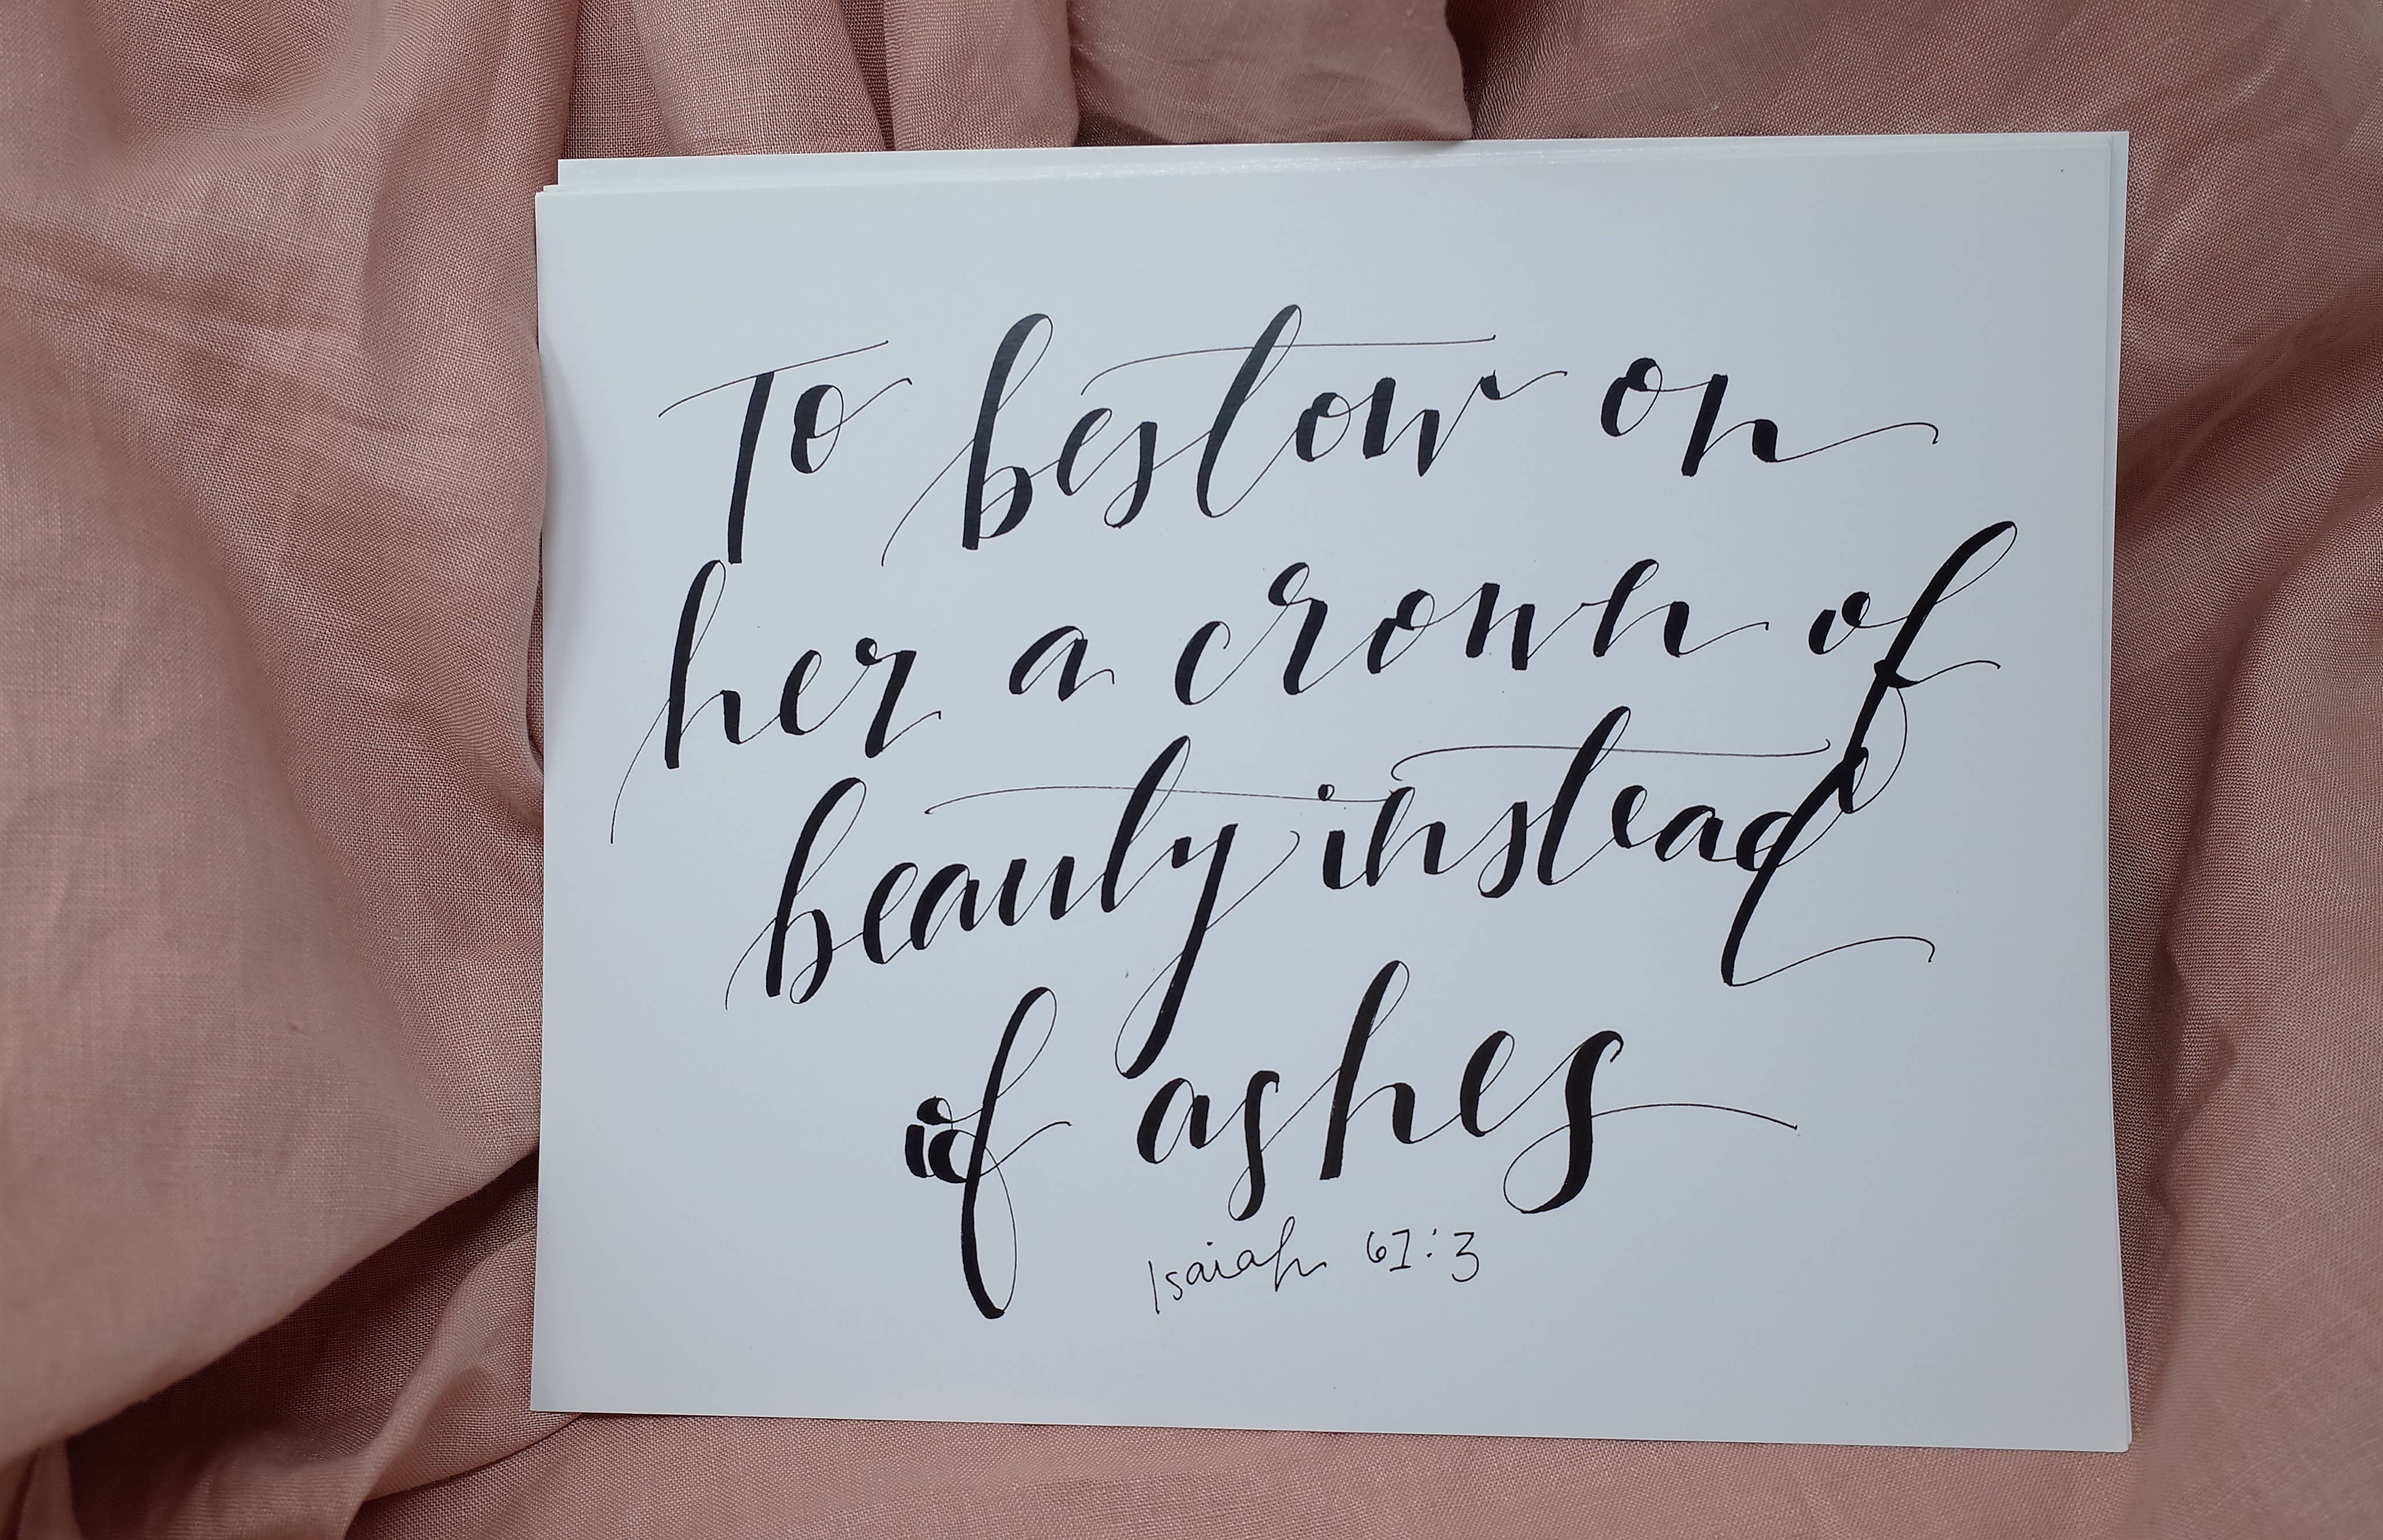 To bestow on
her a crown of
beauty instead
of ashes
Isaiah 61:3